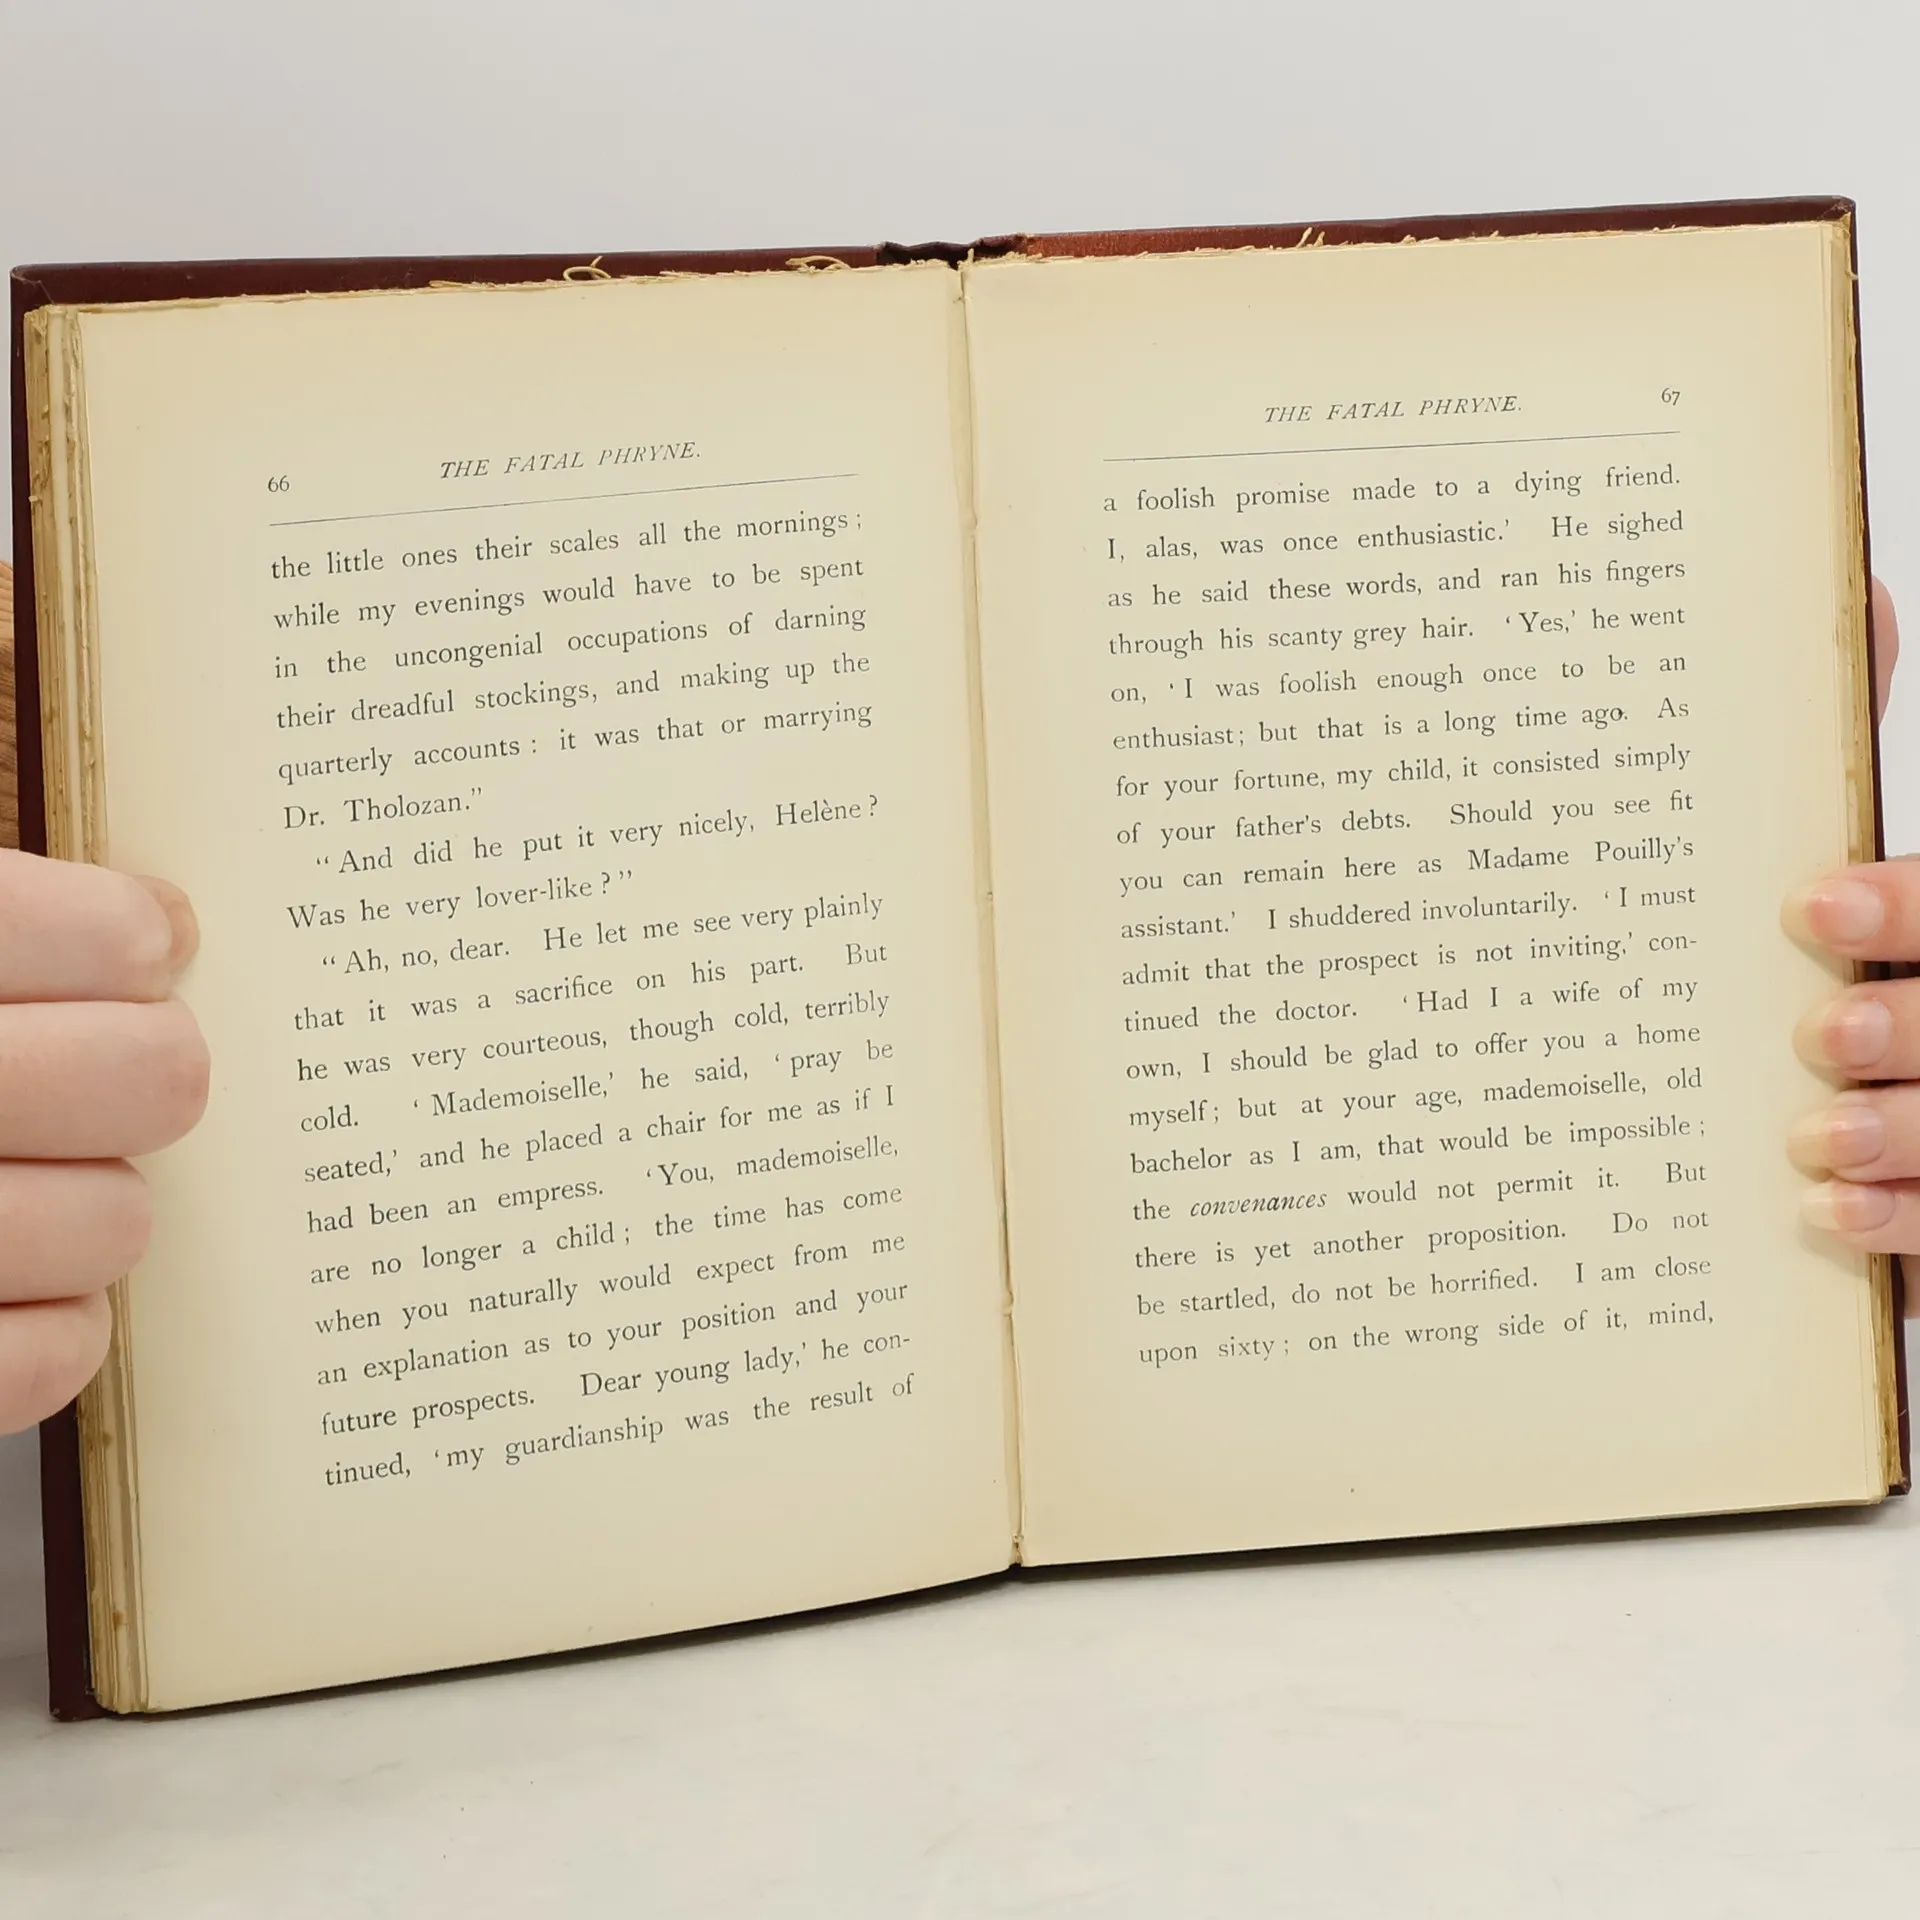 66
THE FATAL PHRYNE.
the little ones their scales all the mornings ;
while my evenings would have to be spent
in the uncongenial occupations of darning
their dreadful stockings, and making up the
quarterly accounts : it was that or marrying
Dr. Tholozan.”
“ And did he put it very nicely, Helène ?
Was he very lover-like ? ”
“ Ah, no, dear. He let me see very plainly
that it was a sacrifice on his part. But
he was very courteous, though cold, terribly
cold. ‘ Mademoiselle,’ he said, ‘ pray be
seated,’ and he placed a chair for me as if I
had been an empress. ‘ You, mademoiselle,
are no longer a child ; the time has come
when you naturally would expect from me
an explanation as to your position and your
future prospects. Dear young lady,’ he con-
tinued, ‘ my guardianship was the result of
THE FATAL PHRYNE.
67
a foolish promise made to a dying friend.
I, alas, was once enthusiastic.’ He sighed
as he said these words, and ran his fingers
through his scanty grey hair. ‘ Yes,’ he went
on, ‘ I was foolish enough once to be an
enthusiast ; but that is a long time ago. As
for your fortune, my child, it consisted simply
of your father’s debts. Should you see fit
you can remain here as Madame Pouilly’s
assistant.’ I shuddered involuntarily. ‘ I must
admit that the prospect is not inviting,’ con-
tinued the doctor. ‘ Had I a wife of my
own, I should be glad to offer you a home
myself ; but at your age, mademoiselle, old
bachelor as I am, that would be impossible ;
the convenances would not permit it. But
there is yet another proposition. Do not
be startled, do not be horrified. I am close
upon sixty ; on the wrong side of it, mind,